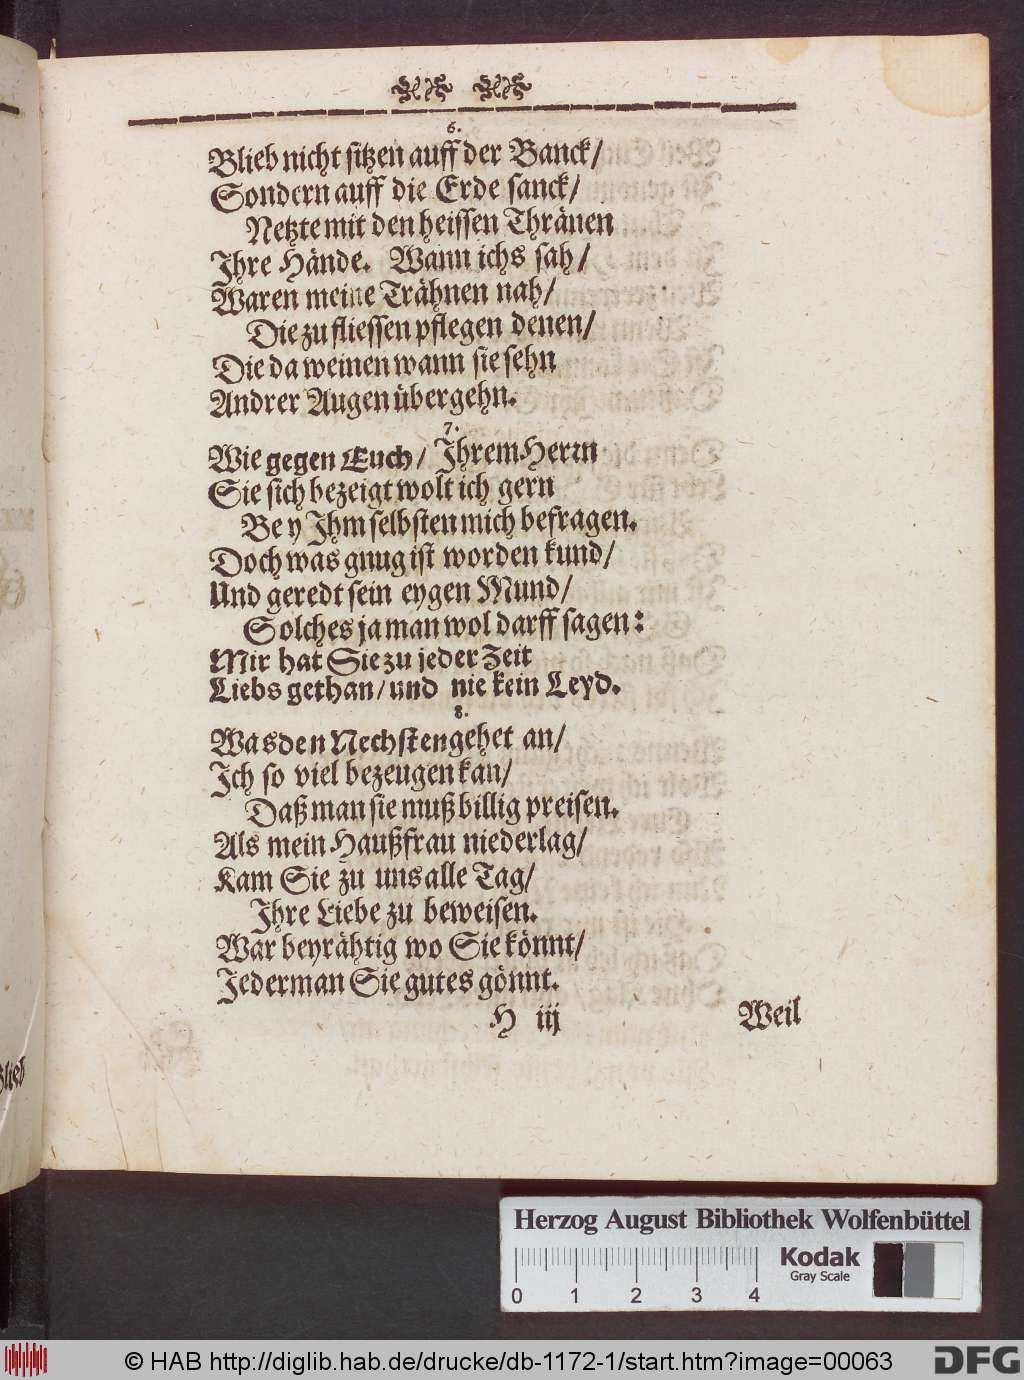 6.
Blieb nicht sitzen auff der Banck/
Sondern auff die Erde sanck/
Netzte mit den heissen Thränen
Ihre Hände. Wann ichs sah/
Waren meine Trähnen nah/
Die zu fliessen pflegen denen/
Die da weinen wann sie sehn
Andrer Augen übergehn.
7.
Wie gegen Euch/ Ihrem Herrn
Sie sich bezeigt wolt ich gern
Bey Ihm selbsten mich befragen.
Doch was gnug ist worden kund/
Und geredt sein eygen Mund/
Solches ja man wol darff sagen:
Mir hat Sie zu jeder Zeit
Liebs gethan/ und nie kein Leyd.
8.
Was den Nechsten gehet an/
Ich so viel bezeugen kan/
Daß man sie muß billig preisen.
Als mein Haußfrau niederlag/
Kam Sie zu uns alle Tag/
Ihre Liebe zu beweisen.
War beyrähtig wo Sie könnt/
Jederman Sie gutes gönnt.
H iij Weil
Herzog August Bibliothek Wolfenbüttel
0 1 2 3 4
Kodak
Gray Scale
© HAB http://diglib.hab.de/drucke/db-1172-1/start.htm?image=00063
DFG